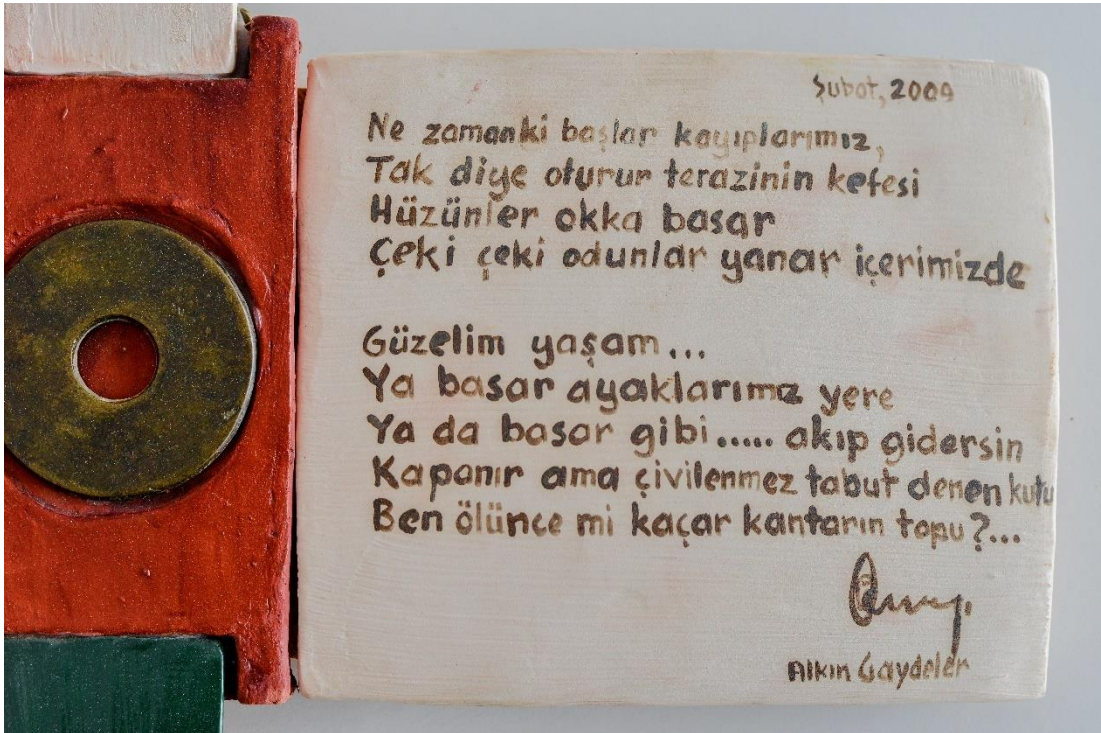 Şubat, 2009
Ne zamanki başlar kayıplarımız,
Tak diye oturur terazinin kefesi
Hüzünler okka basar
Çeki çeki odunlar yanar içerimizde
Güzelim yaşam...
Ya basar ayaklarımız yere
Ya da basar gibi..... akıp gidersin
Kapanır ama çivilenmez tabut denen kutu
Ben ölünce mi kaçar kantarın topu?...
Alkın Gaydeler